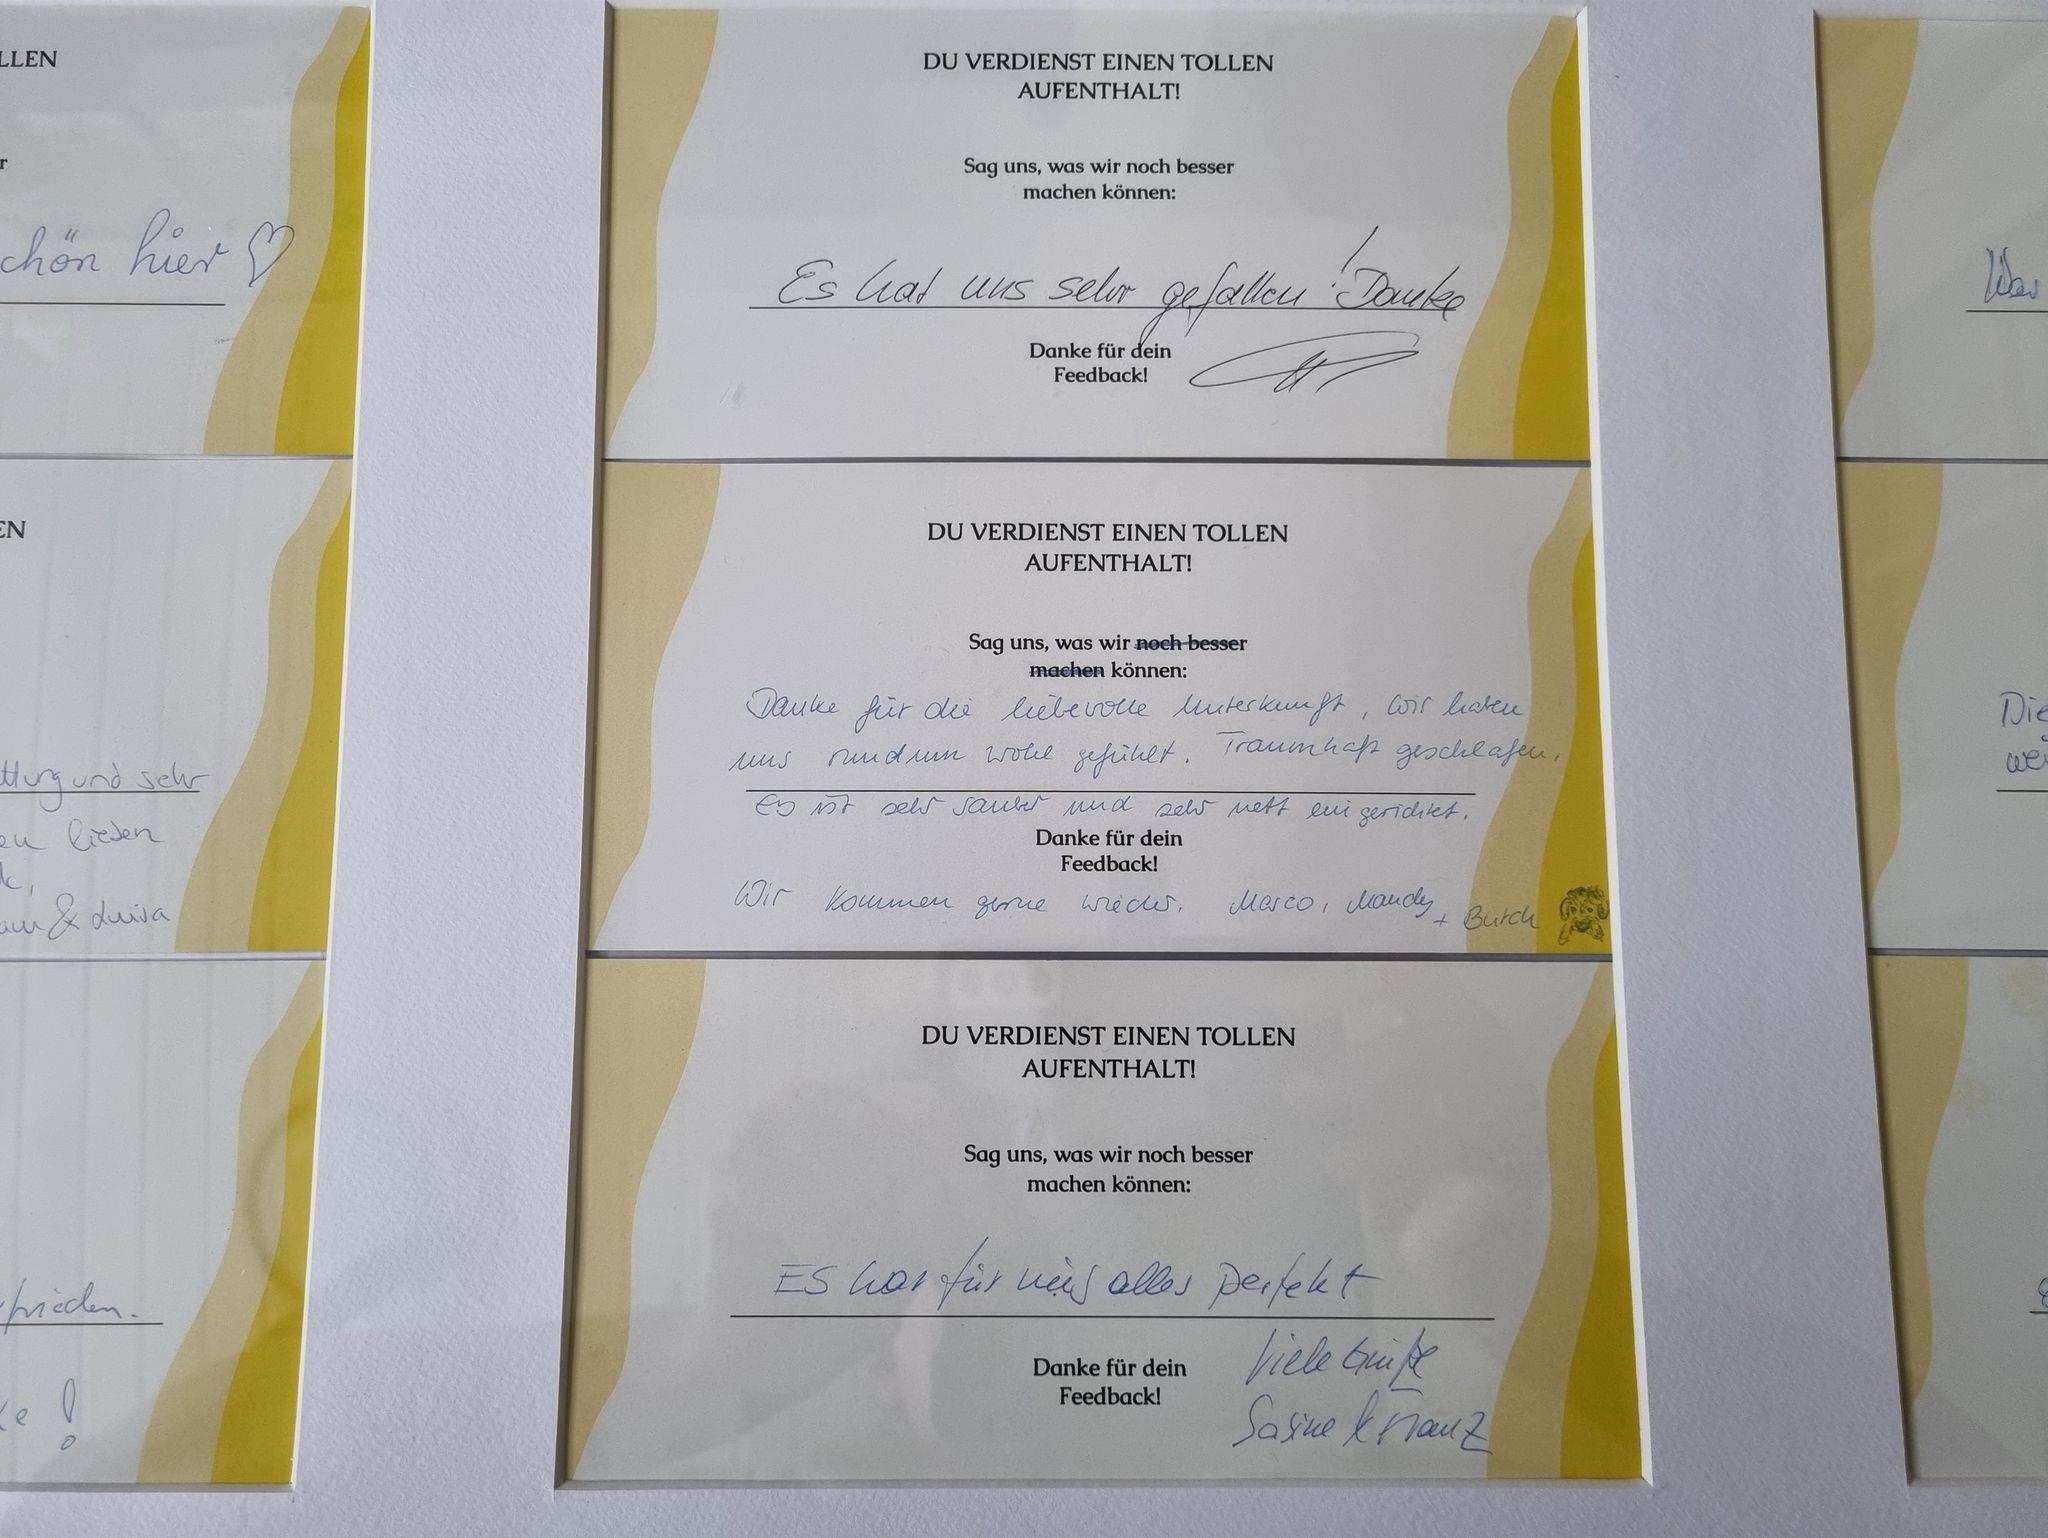 LLEN
r
chön hier ♡
EN
ttung und sehr
en lieben
k,
am & Luisa
frieden.
ke !
DU VERDIENST EINEN TOLLEN
AUFENTHALT!
Sag uns, was wir noch besser
machen können:
Es hat uns sehr gefallen! Danke
Danke für dein
Feedback!
DU VERDIENST EINEN TOLLEN
AUFENTHALT!
Sag uns, was wir noch besser
machen können:
Danke für die liebevolle Unterkunft, wir haben
uns rundum wohl gefühlt. Traumhaft geschlafen.
Es ist sehr sauber und sehr nett eingerichtet.
Danke für dein
Feedback!
Wir kommen gerne wieder. Marco, Mandy
+ Butch
DU VERDIENST EINEN TOLLEN
AUFENTHALT!
Sag uns, was wir noch besser
machen können:
ES war für uns alles perfekt
Danke für dein
Feedback!
Viele Grüße
Sabine & Franz
War
Die
we